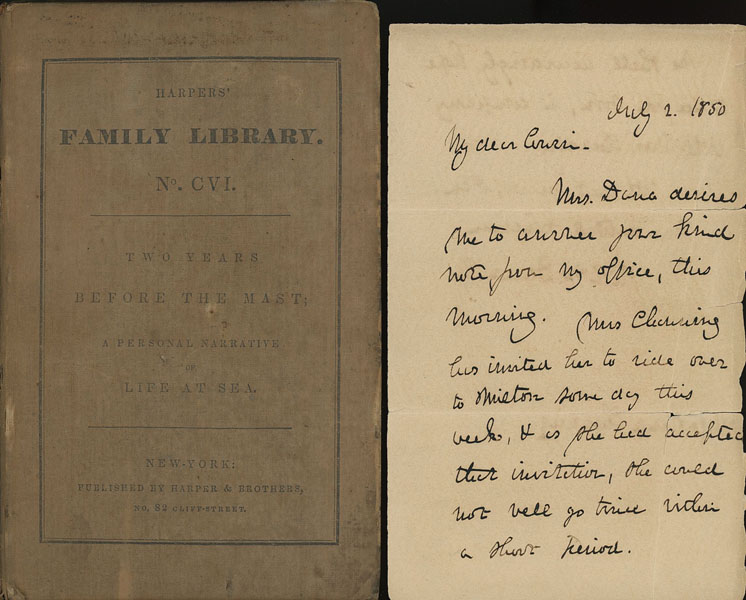 HARPERS'
FAMILY LIBRARY.
No. CVI.
TWO YEARS
BEFORE THE MAST;
A PERSONAL NARRATIVE
OF
LIFE AT SEA.
NEW-YORK:
PUBLISHED BY HARPER & BROTHERS,
NO. 82 CLIFF-STREET.
July 2. 1850
My dear Cousin.
Mrs. Dana desires
me to answer your kind
note, from my office, this
morning. Mrs Channing
has invited her to ride over
to Milton some day this
week, & as she had accepted
that invitation, she could
not well go twice within
a short period.